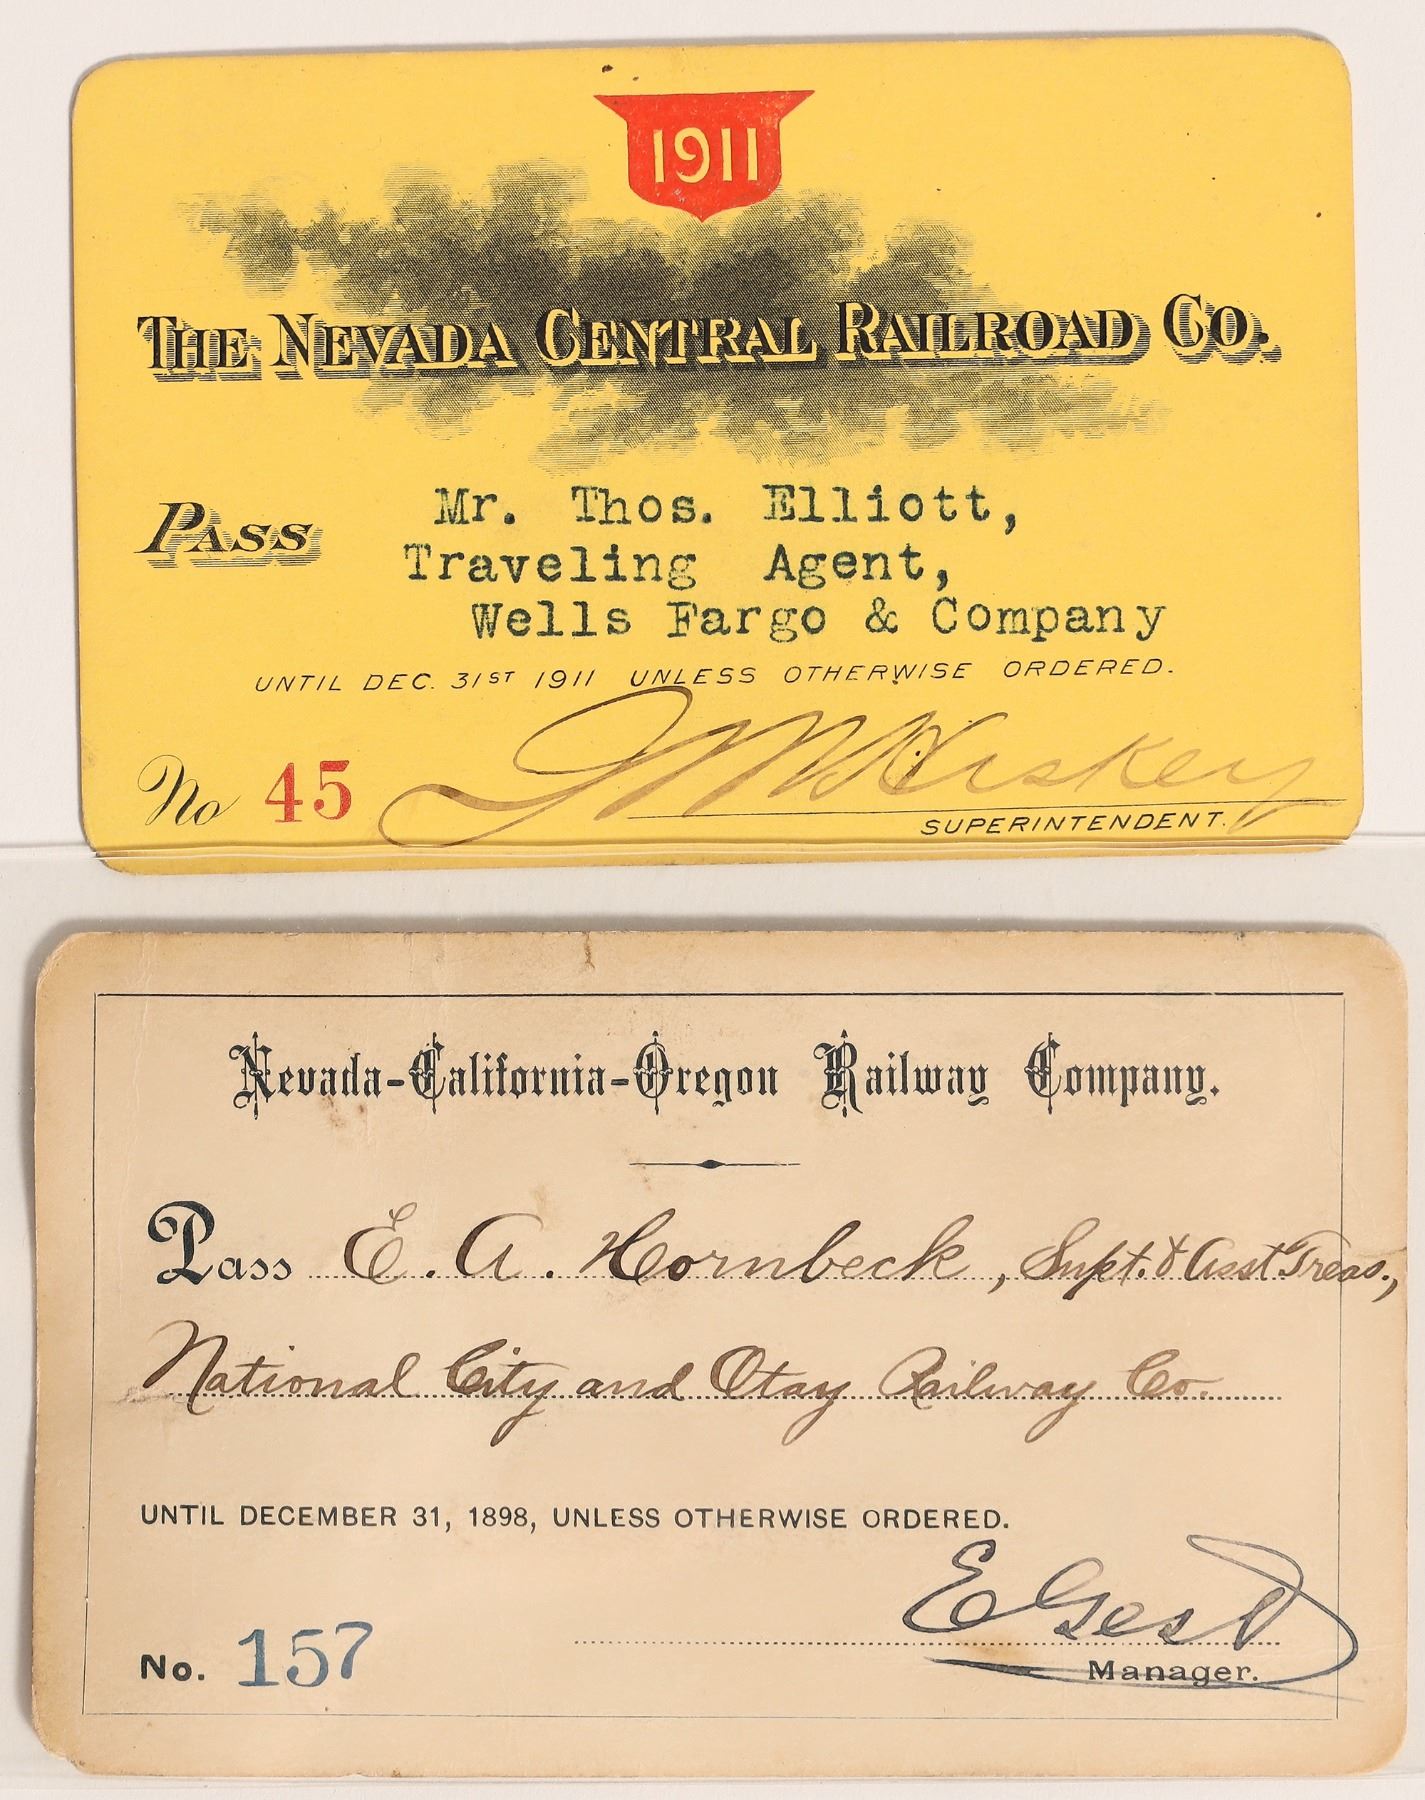 1911
THE NEVADA CENTRAL RAILROAD CO.
PASS Mr. Thos. Elliott,
Traveling Agent,
Wells Fargo & Company
UNTIL DEC. 31ST 1911 UNLESS OTHERWISE ORDERED.
No 45
SUPERINTENDENT.
Nevada-California-Oregon Railway Company.
Pass E. A. Hornbeck, Supt. & Asst Treas.,
National City and Otay Railway Co.
UNTIL DECEMBER 31, 1898, UNLESS OTHERWISE ORDERED.
E Gest
No. 157
Manager.